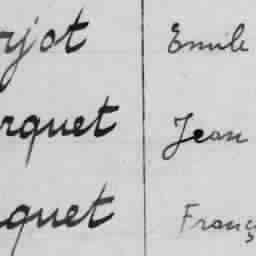 rjot Emile
rquet Jean
quet Franç